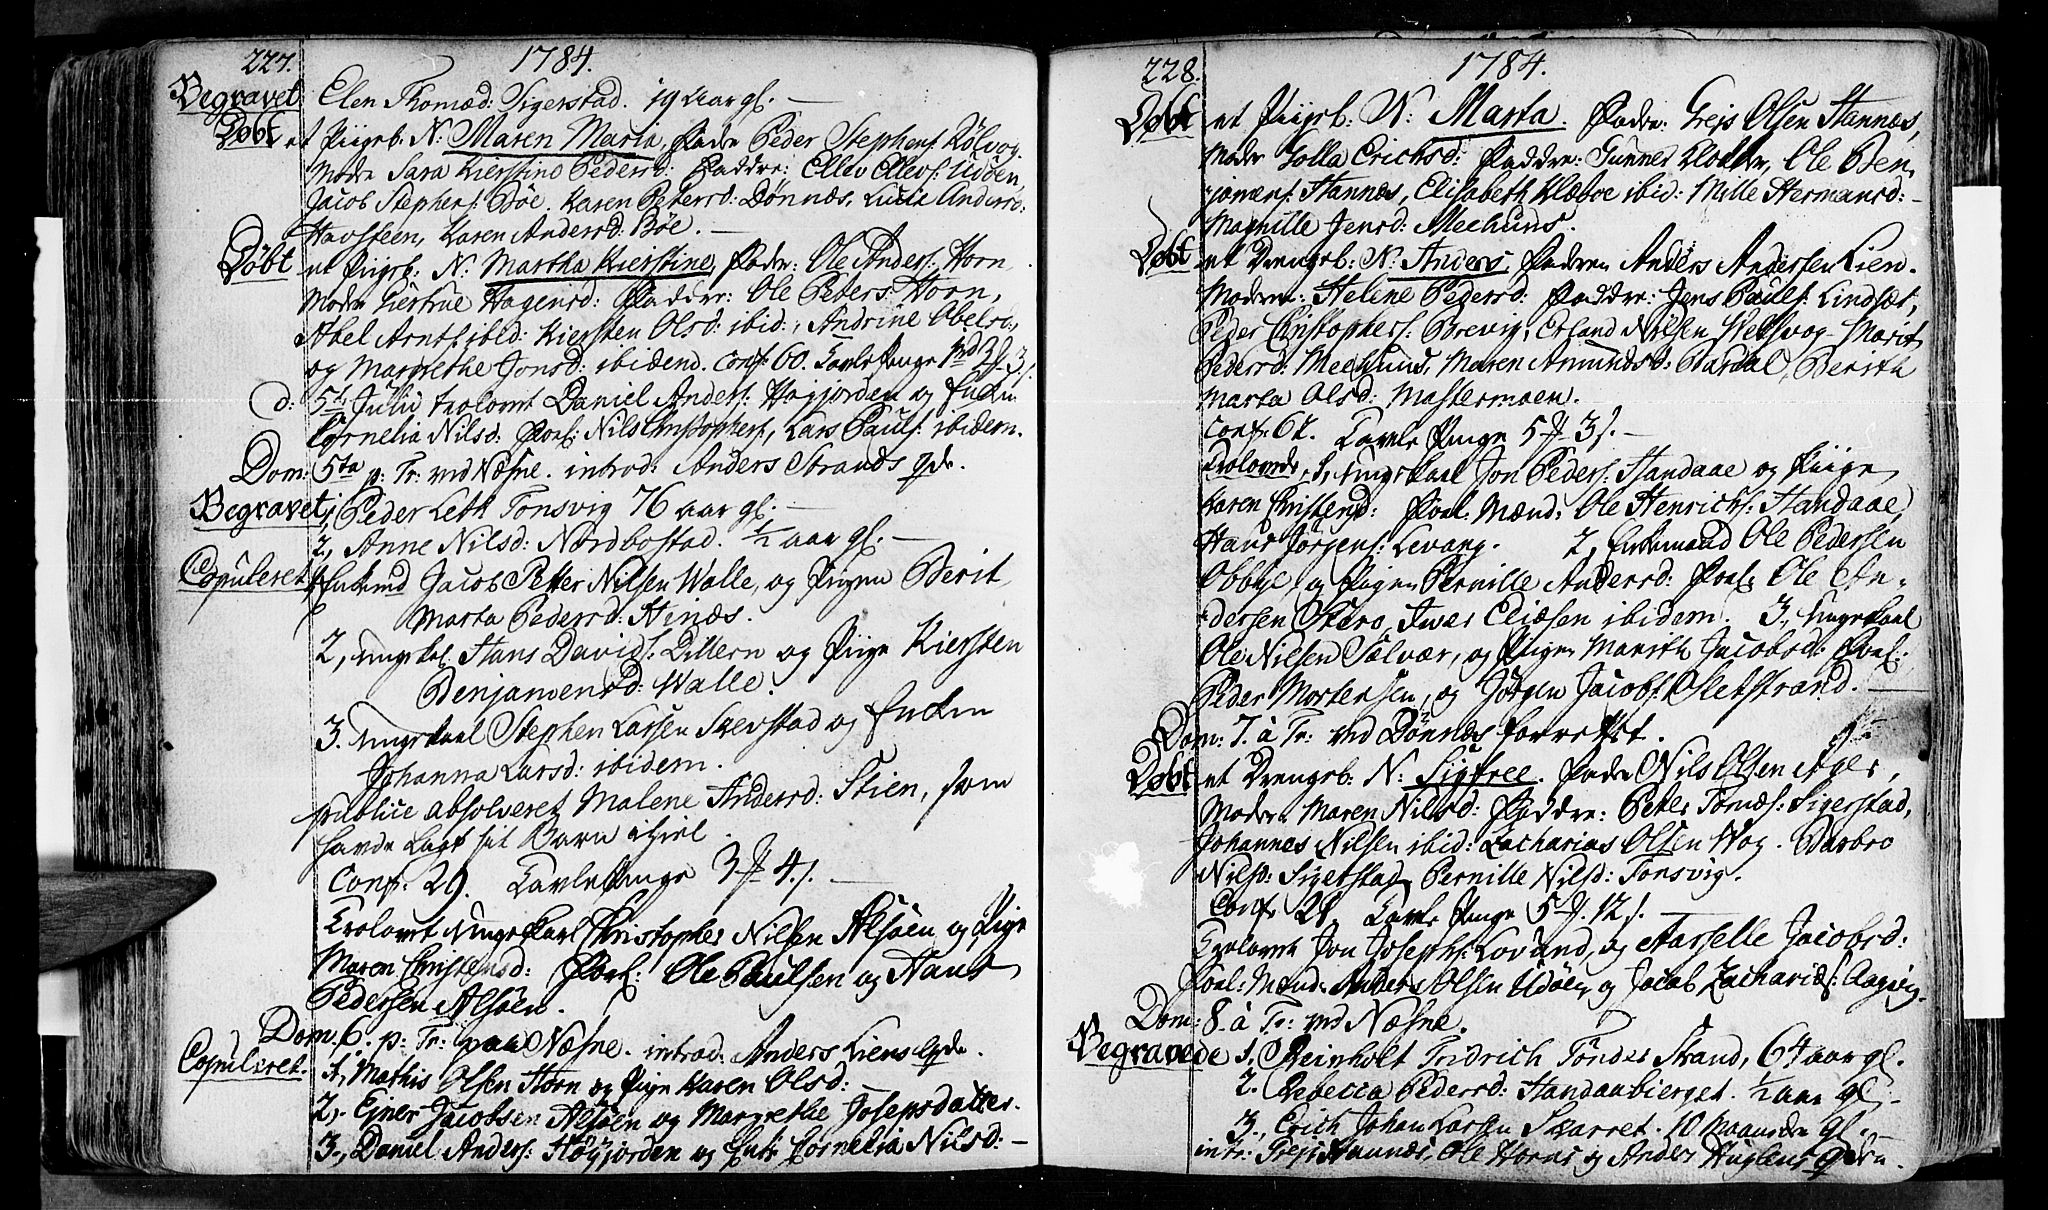 227. 1784.
Begravet Elen Thomæd. Sigerstad. 19 Aar gl. —
Døbt et Piigeb. N: Maren Maria, Fader Peder Stephens: Kølvog
Moder Sara Kierstine Pedersd: Faddre: Ellev Ellevs: Udøen,
Jacob Stephens: Bøe. Karen Petersd: Dønnæs, Lucie Andersd:
Havsteen, Karen Andersd: Bøe. —
Døbt et Piigeb: N: Martha Kierstine, Fader: Ole Anders: Horn
Moder Giertrue Hagensd: Faddre: Ole Peders: Horn,
Abel Arnts: ibid: Kiersten Olsd: ibid:, Andrine Abelsd:
og Margrethe Jonsd: ibidem. Conf: 60. Tavle Penge 3 s.
d: 5te Julii trolovet Daniel Anders: Høgjorden og Enken
Cornelia Nilsd: Forl: Nils Christophers:, Lars Pauls: ibidem.
Dom: 5ta p: Tr: ved Næsne. introd: Anders Strands qde.
Begravet 1, Peder Leth Tonsvig 76 aar gl. —
2, Anne Nilsd: Nordbostad. ½ aar gl. —
Copuleret 1, Enkemd Jacob Petter Nilsen Walle, og Pigen Berit
Marta Pedersd: Hinæs.
2, Ungkal. Hans Davids: Dillern og Piige Kiersten
Benjamensd: Walle.
3. Ungekaal Stephen Larsen Skevstad og Enken
Johanna Larsd: ibidem.
publice absolveret Malene Andersd: Stien, som
havde lagt sit Barn ihiel.
Conf. 29. Tavle Penge 3 # 4 s. —
Trolovet Unge Karl Christopher Nilsen Alsøen og Pige
Maren Christensd: Forl: Ole Paulsen og Hans
Pedersen Alsøen.
Dom: 6. p: Tr: paa Næsne. introd: Anders Liens qde.
Copuleret. 1, Mathis Olsen Horn og Pige Karen Olsd: —
2, Ejner Jacobsen Alsøen og Margrethe Josepsdatter.
3, Daniel Anders: Høgjorden og Enke Cornelia Nilsd: —
228. 1784.
Døbt et Piigeb: N: Marta. Fader: Grejs Olsen Hannæs,
Moder Golla Erichsd: Faddre: Gunner Klodder, Ole Ben-
jamens: Hannæs, Elisabeth Klæboe ibid: Mille Hermansd: —
Magnille Jensd: Meehuus.
Døbt et Drengeb: N: Anders, Faderen Anders Andersen Lien.
Moderen: Helene Pedersd: Faddre: Jens Pauls: Lindsæt,
Peder Christophers: Brevig, Erland Nilsen Marit
Pedersd: Meehuus, Maren Amundsd: Bardal, Berith
Marta Olsd: Mastermoen.
Conf. 67. Tavle Penge 5 # 3 s. —
Trolovede, 1, Ungekaal Jon Peders: Handaae og Piige
Karen Christensd: Forl: Mænd: Ole Henrichs: Handaae,
Hans Jørgens: Levang. 2, Enkemand Ole Pedersen
Obbye, og Pigen Pernille Andersd: Forl: Ole An-
dersen Skero, Iwer Eliæsen ibidem. 3, Ungekaal
Ole Nilsen Solvær, og Pigen Marith Jacobsd: Forl:
Peder Mortensen, og Jørgen Jacobs: Sletstrand. —
Dom: 7. à Tr: ved Dønnæs forrettet.
Døbt et Drengeb: N: Sigfree. Fader Nils Olsen Ager,
Moder Maren Nilsd: Faddre: Peter Tomæs: Sigerstad,
Johannes Nilsen ibid: Zacharias Olsen Wog. Barbro
Nilsd: Sigerstad, Pernille Nilsd: Tonsvig.
Conf. 21. Tavle Penge 5 # 12 s. —
Trolovet Jon Josephs: Lovund, og Aarselle Jacobsd:
Forl: Mænd: Anders Olsen Udøen, og Jacob Zacharias: Aagvig.
Dom: 8. à Tr: ved Næsne.
Begravede 1. Reinholt Fridrich Tønder Strand, 64 aar gl.
2. Rebecca Pedersd: Handaabierget. ½ aar gl. —
3., Erich Johan Larsen Skarret. 10 Maaneder gl. —
intr: Grejs Hannæs, Ole Horns og Anders Huglens qdru.